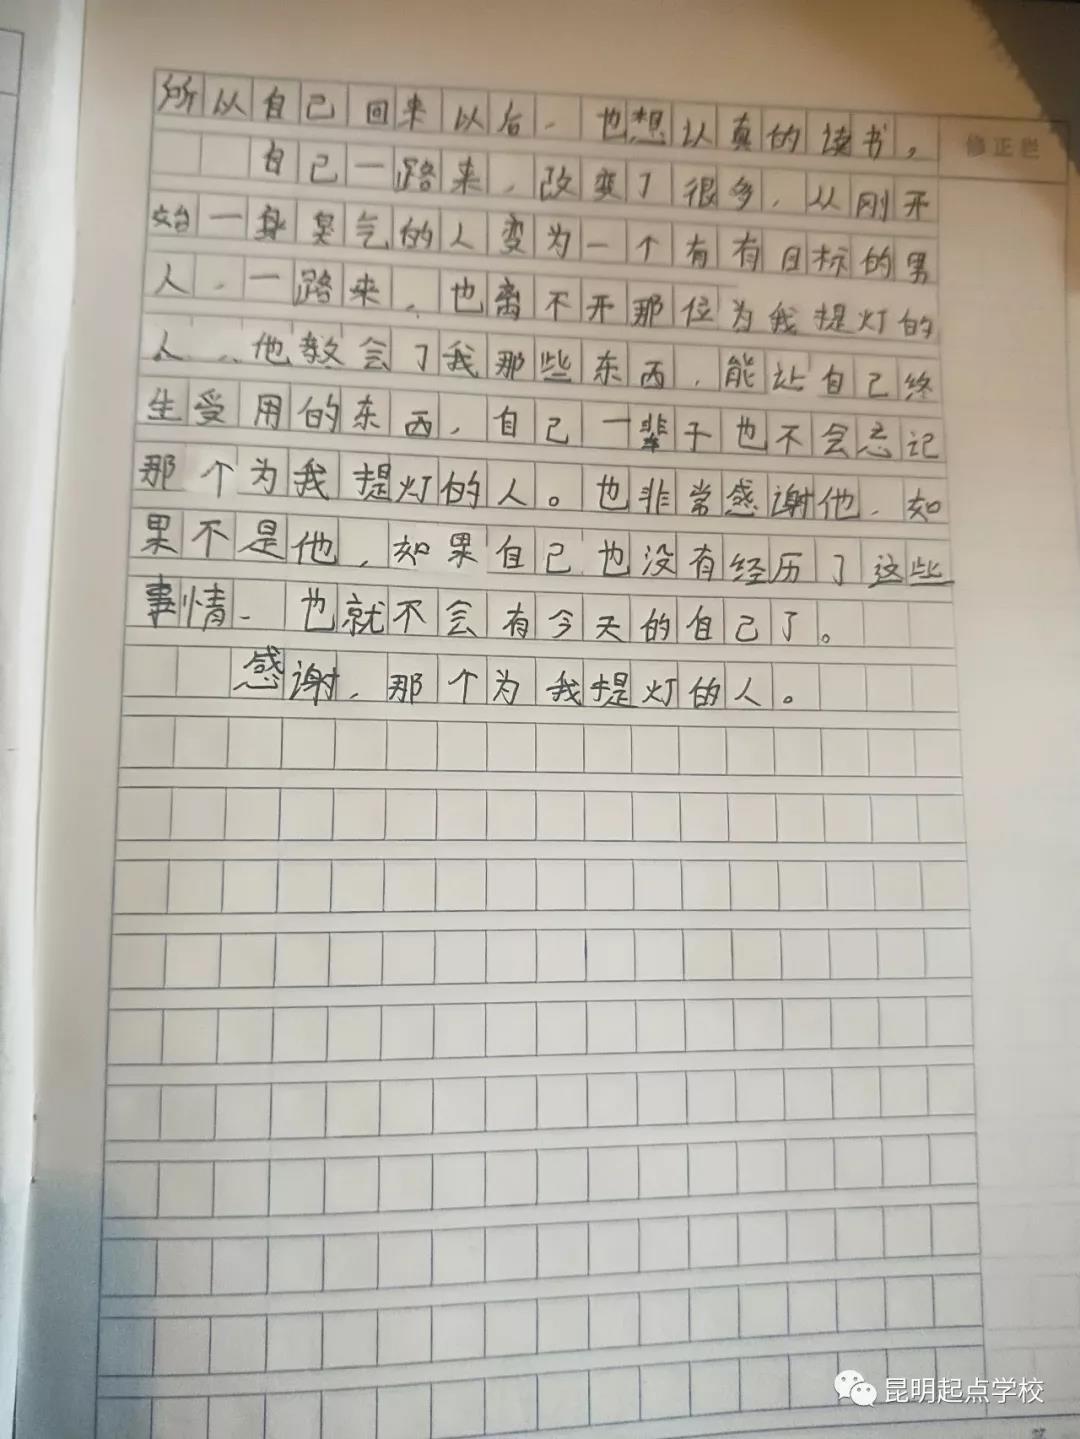 所以自己回来以后，也想认真的读书，
修正栏
自己一路来，改变了很多，从刚开
始一身臭气的人变为一个有有目标的男
人，一路来，也离不开那位为我提灯的
人，他教会了我那些东西，能让自己终
生受用的东西，自己一辈子也不会忘记
那个为我提灯的人。也非常感谢他，如
果不是他，如果自己也没有经历了这些
事情、也就不会有今天的自己了。
感谢，那个为我提灯的人。
昆明起点学校